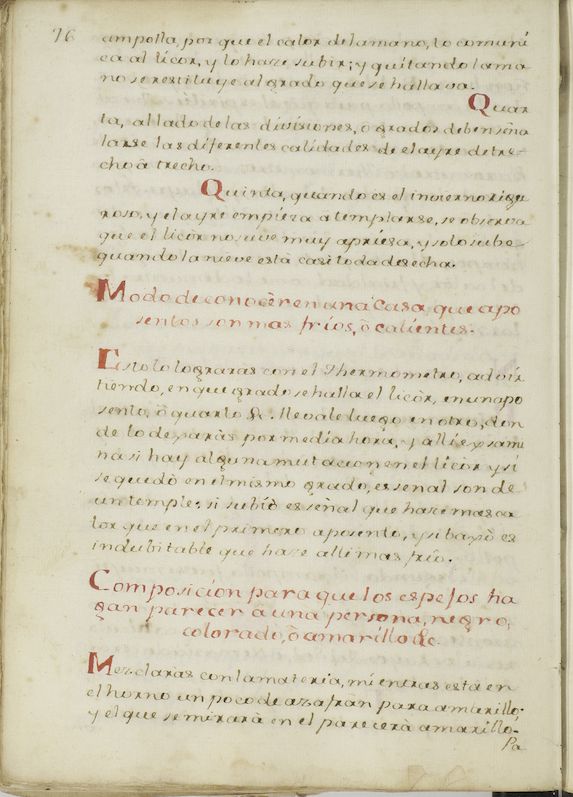 76
ampolla, por que el calor dela mano, lo comuni
ca al licor, y lo haze subir; y quitando la ma
no se restituye al grado que se hallava.
Quar
ta, al lado de las divisiones, ò grados deben seña
larse las diferentes calidades de el ayre de tre-
cho â trecho.
Quinta, quando es el invierno rigu
roso, y el ayre empieza a templarse, se observa
que el licor no sube muy apriesa, y solo sube
quando la nieve està casi toda desecha.
Modo de conocèr en una casa que apo
sentos son mas frios, ò calientes.
Esto lo lograras con el Thermometro, advir
tiendo, en que grado se halla el licòr, en un apo
sento, ò quarto &. llevale luego en otro, don
de lo dexaràs por media hora, y alli exami
na si hay alguna mutacion en el licor y si
se quedò en el mismo grado, es señal son de
un temple; si subiò es señal que haze mas ca
lor que en el primero aposento, y si baxò es
indubitable que haze alli mas frio.
Composicion para que los espejos ha
gan parecer à una persona, negro,
colorado, ò amarillo &c.
Mezclaras con la materia, mientras està en
el horno un poco de azafràn para amarillo;
y el que se mirarà en el parecerà amarillo.
Pa